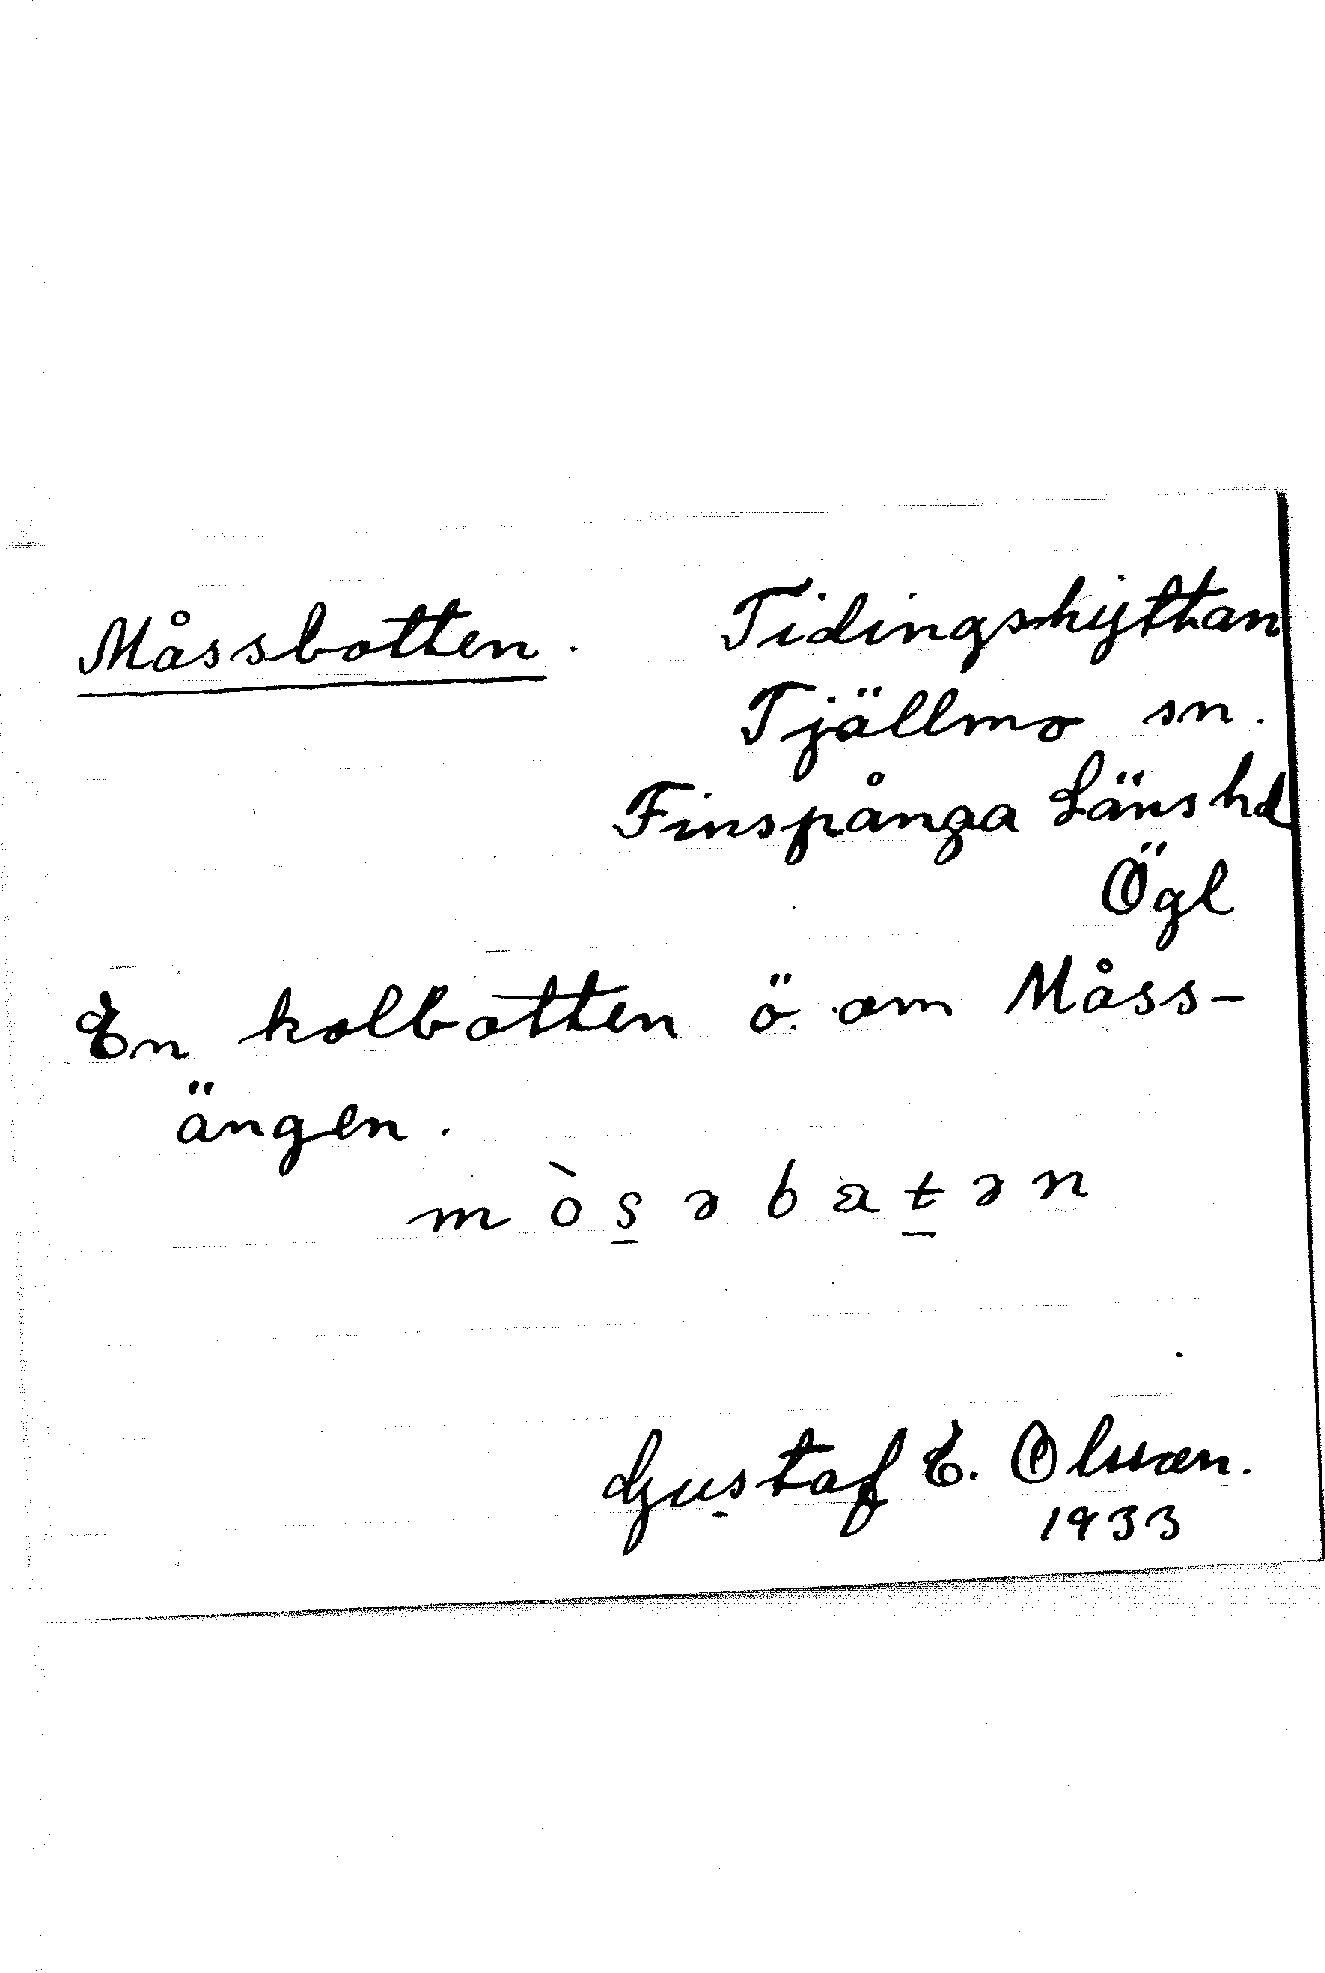 Måssbotten. Tidingshyttan
Tjällmo sn.
Finspånga Läns hd
Ögl
En kolbotten ö. om Måss-
ängen.
Gustaf E. Olsson.
1933